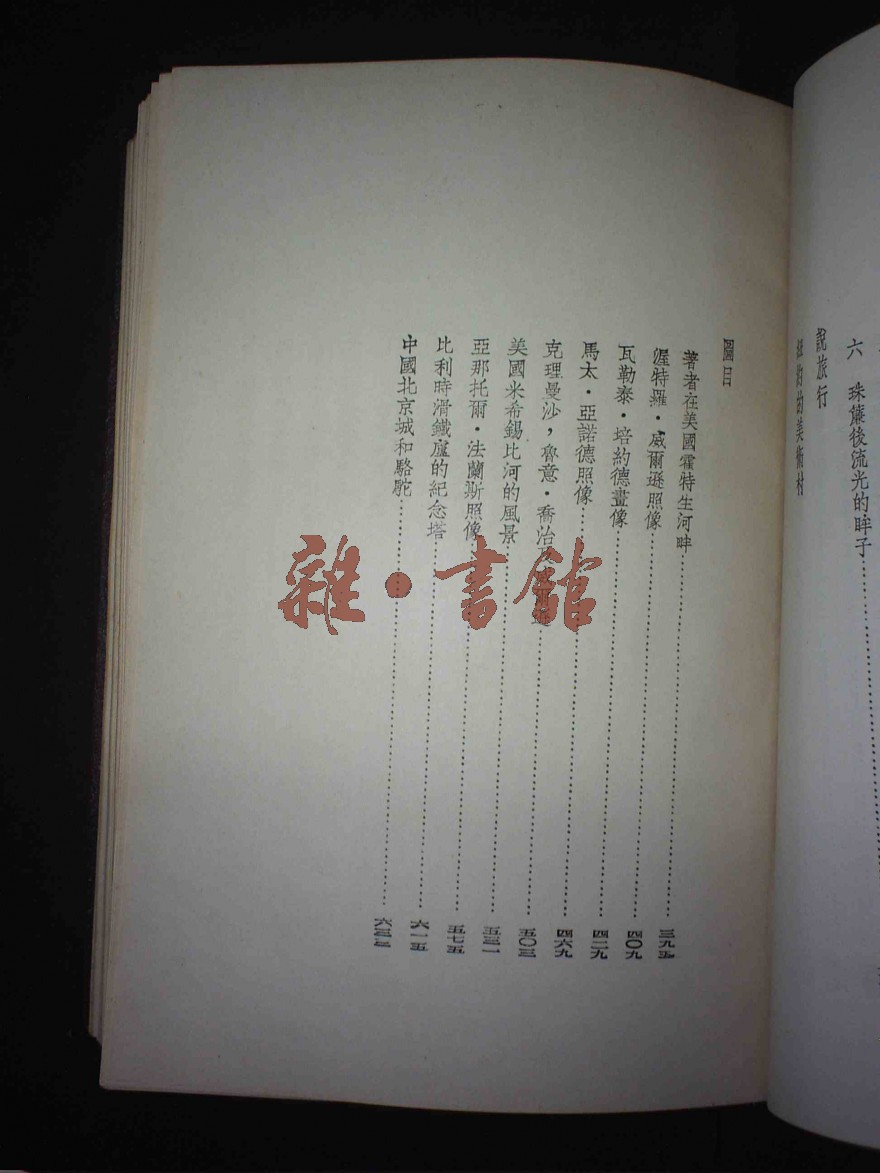 六 珠簾後流光的眸子
說旅行
紐約的美術村
圖目
著者在美國霍特生河畔 三九五
渥特羅・威爾遜照像 四〇九
瓦勒泰・培約德畫像 四二九
馬太・亞諾德照像 四六九
克理曼沙，魯意・喬治 五〇三
美國米希錫比河的風景 五三一
亞那托爾・法蘭斯照像 五七五
比利時滑鐵盧的紀念塔 六一五
中國北京城和駱駝 六三三
雜・書館